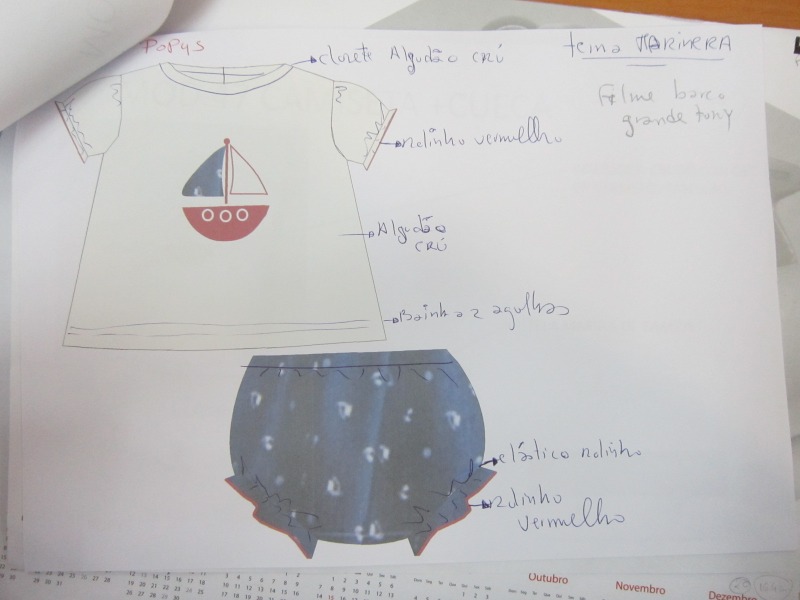 POPYS
clorete Algodão CRÚ
tema MARINERA
Filme barco
grande tony
rolinho vermelho
Algodão
CRÚ
Bainha 2 agulhas
elástico rolinho
rolinho
vermelho
Outubro
Novembro
Dezembro